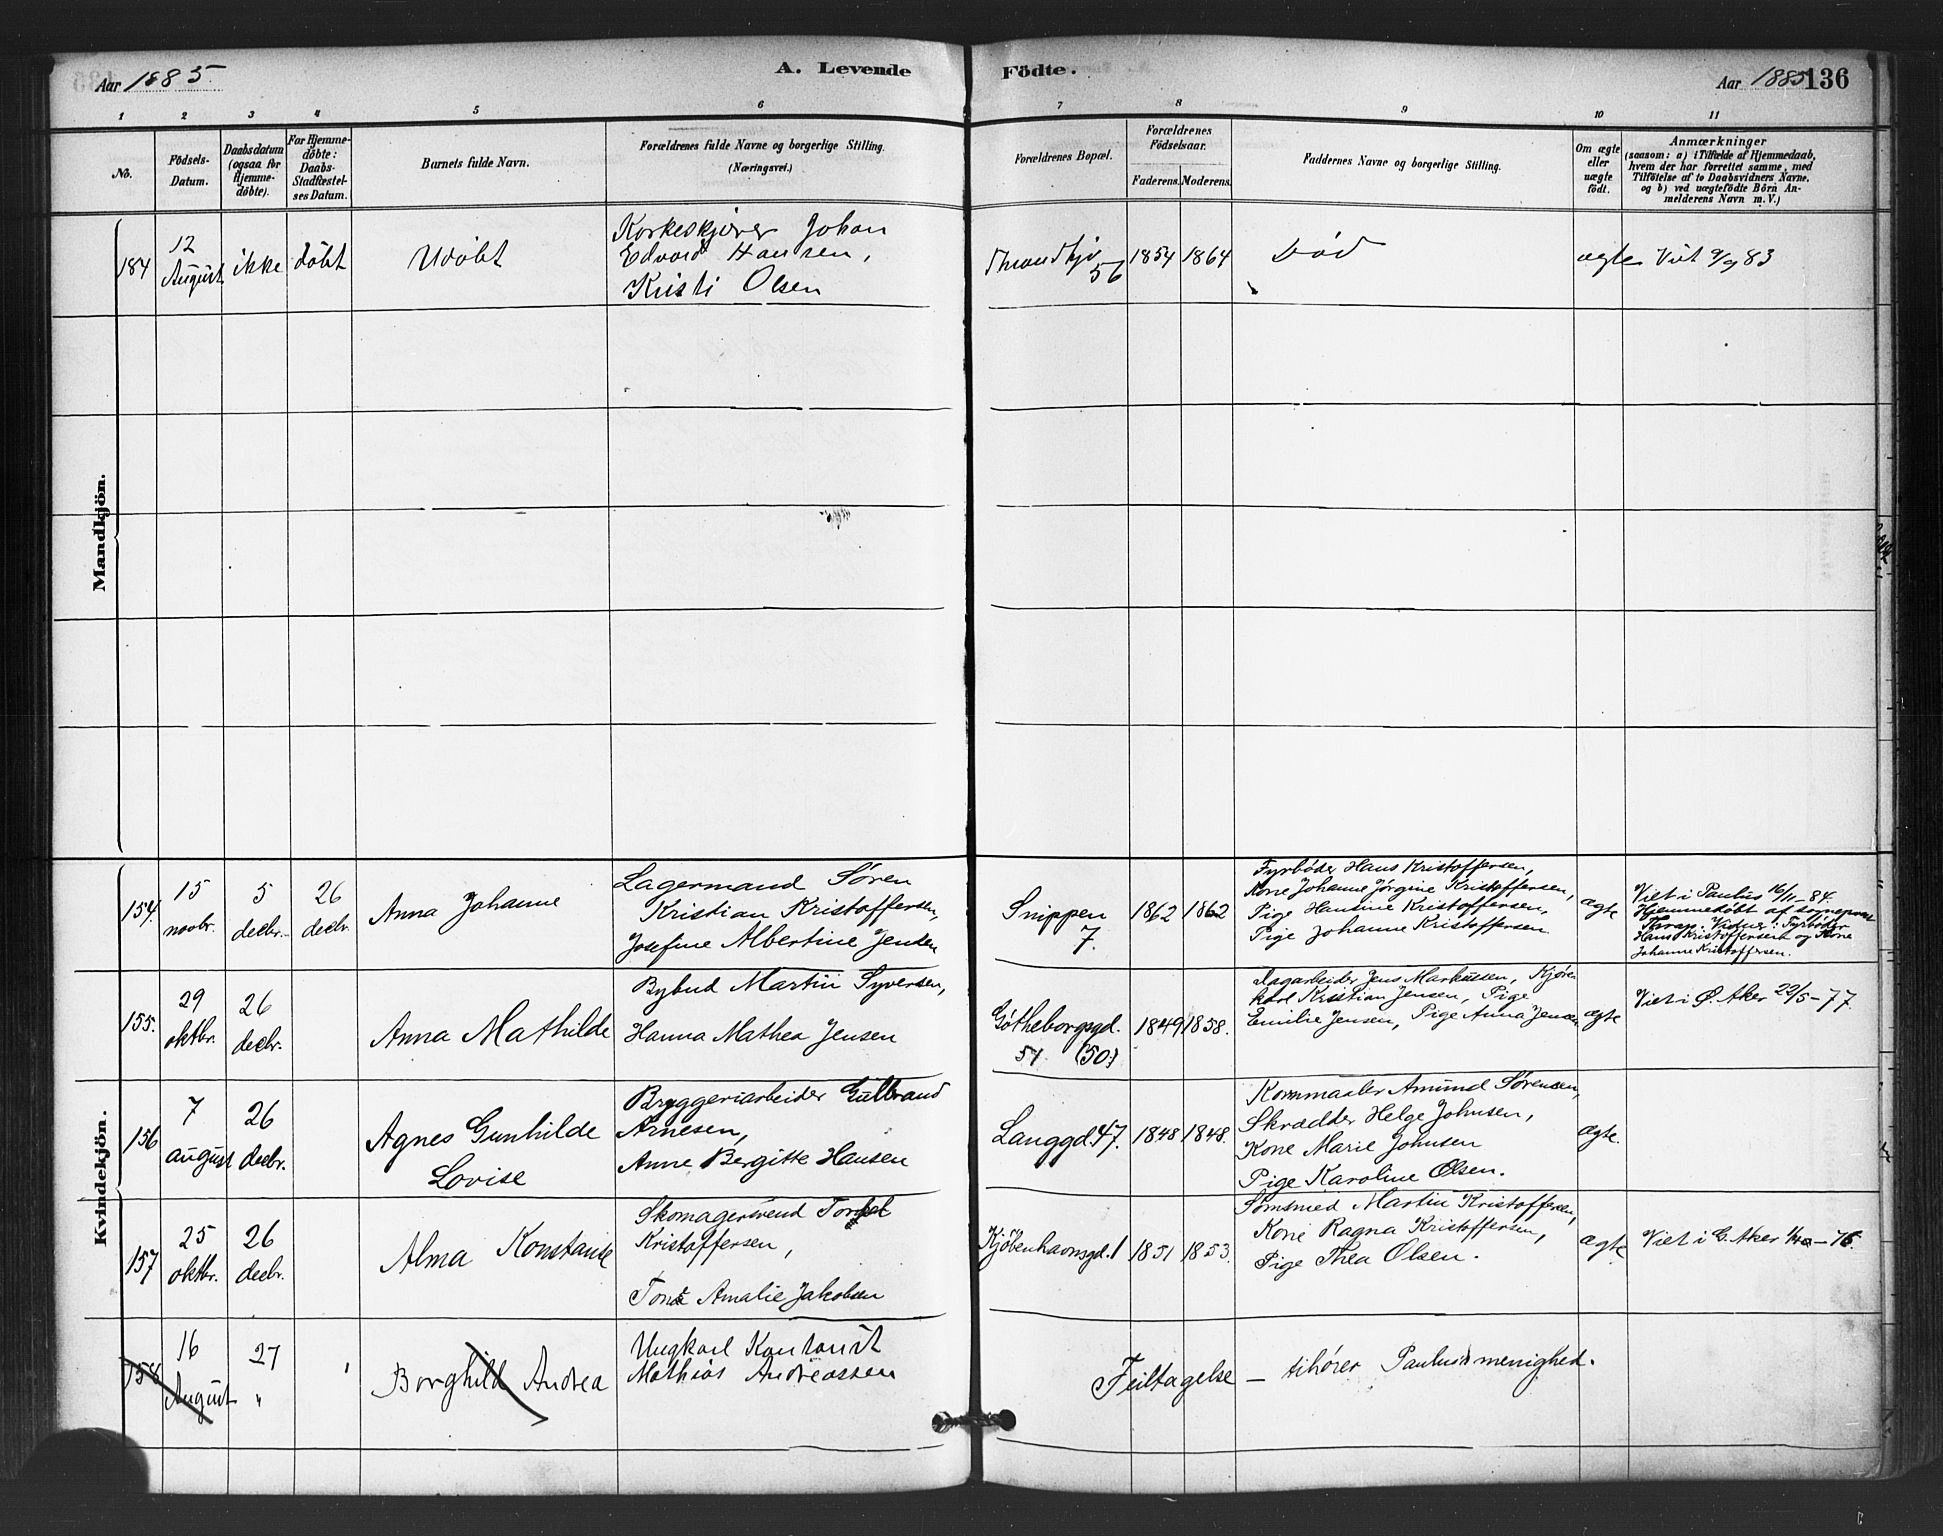 Aar 1885.
A. Levende Födte.
Aar 1885
136
1 2 3 4 5 6 7 8 9 10 11
No.
Födsels-
Datum.
Daabsdatum
(ogsaa for
Hjemme-
döbte).
For Hjemme-
döbte:
Daabs-
Stadfæstel-
ses Datum.
Barnets fulde Navn.
Forældrenes fulde Navne og borgerlige Stilling.
(Næringsvei.)
Forældrenes Bopæl.
Forældrenes
Födselsaar.
Faderens. Moderens.
Faddernes Navne og borgerlige Stilling.
Om ægte
eller
uægte
födt.
Anmærkninger
(saasom: a) i Tilfælde af Hjemmedaab,
hvem der har forrettet samme, med
Tilföielse af to Daabsvidners Navne,
og b) ved uægtefödte Börn An-
melderens Navn m. V.)
Mandkjön.
184
12
August
ikke
döbt
Udöbt
Korkeskjærer Johan
Edvard Hansen,
Kristi Olsen
Throndhjv
56
1854
1864
Död
ægte
Viet 9/9 83
Kvindekjön.
154.
15
novbr.
5
decbr.
26
decbr.
Anna Johanne
Lagermand Søren
Kristian Kristoffersen,
Josefine Albertine Jensen
Snippen
7.
1862
1862
Fyrbøder Hans Kristoffersen,
Kone Johanne Jørgine Kristoffersen,
Pige Hansine Kristoffersen,
Pige Johanne Kristoffersen
ægte
Viet i Paulus 16/11-84.
Hjemmedøbt af sognepræst
Vidner: Fyrbøder
Hans Kristoffersen og Kone
Johanne Kristoffersen.
155.
29
oktbr.
26
decbr.
Anna Mathilde
Bybud Martin Syversen,
Hanna Mathea Jensen
Gøtheborgsgd.
51 (50)
1849
1858.
Dagarbeider Jens Markussen, Kjøre-
karl Kristian Jensen, Pige
Emilie Jensen, Pige Anna Jensen
ægte
Viet i Ø. Aker 22/5-77.
156
7
august
26
decbr.
Agnes Gunhilde
Lovise
Bryggeriarbeider Gulbrand
Arnesen,
Anne Bergitte Hansen
Langgd. 47.
1848
1848.
Kornmaaler Amund Sørensen,
Skrædder Helge Johnsen,
Kone Marie Johnsen
Pige Karoline Olsen.
ægte.
157
25
oktbr.
26
decbr.
Alma Konstanse
Skomagersvend Torgel
Kristoffersen,
Amalie Jakobsen
Kjøbenhavnsgd. 1
1851
1853.
Sømsmed Martin Kristoffersen,
Kone Ragna Kristoffersen,
Pige Thea Olsen.
ægte
Viet i G. Aker
158
16
August
27
"
Borghild Andrea
Ungkarl Kontorist
Mathias Andreassen
Feiltagelse — tihører Paulus menighed.